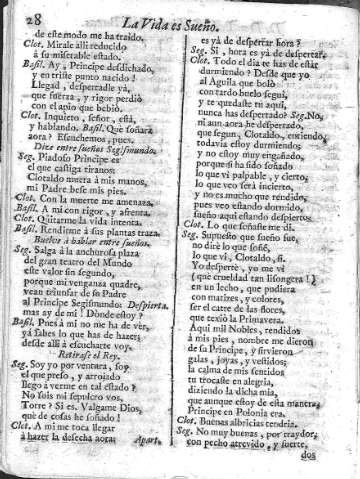 28
La Vida es Sueño.
de este modo me ha traido.
Clot. Mirale alli reducido
à su miserable estado.
Basil. Ay, Principe desdichado,
y en triste punto nacido!
Llegad, despertadle yà,
que fuerza, y rigor perdiò
con el opio que bebiò.
Clot. Inquieto, señor, està,
y hablando. Basil. Què soñarà
aora? Escuchemos, pues.
Dize entre sueños Segismundo.
Seg. Piadoso Principe es
el que castiga tiranos;
Clotaldo muera à mis manos,
mi Padre bese mis pies.
Clot. Con la muerte me amenaza.
Basil. A mi con rigor, y afrenta.
Clot. Quitarme la vida intenta.
Basil. Rendirme à sus plantas traza.
Buelve à hablar entre sueños.
Seg. Salga à la anchurosa plaza
del gran teatro del Mundo
este valor sin segundo,
porque mi venganza quadre,
vean triunfar de su Padre
al Principe Segismundo. Despierta.
mas ay de mi! Dònde estoy?
Basil. Pues à mi no me ha de vèr,
yà sabes lo que has de hacer;
desde alli à escucharte voy.
Retirase el Rey.
Seg. Soy yo por ventura, soy
el que preso, y arrojado
llego à verme en tal estado?
No sois mi sepulcro vos,
Torre? Si es. Valgame Dios,
què de cosas he soñado!
Clot. A mi me toca llegar
à hazer la desecha aora: Apart.
es yà de despertar hora?
Seg. Si, hora es yà de despertar.
Clot. Todo el dia te has de estàr
durmiendo? Desde que yo
al Aguila que bolò
con tardo buelo seguì,
y te quedaste tu aqui,
nunca has despertado? Seg. No,
ni aun aora he despertado,
que segun, Clotaldo, entiendo,
todavia estoy durmiendo;
y no estoy muy engañado,
porque si ha sido soñado
lo que vì palpable, y cierto,
lo que veo serà incierto,
y no es mucho que rendido,
pues veo estando dormido,
sueño aqui estando despierto.
Clot. Lo que soñaste me dì.
Seg. Supuesto que sueño fue,
no dirè lo que soñè,
lo que vì, Clotaldo, si.
Yo despertè, yo me vì
(què crueldad tan lisongera!)
en un lecho, que pudiera
con matizes, y colores,
ser el catre de las flores,
que texiò la Primavera.
Aqui mil Nobles, rendidos
à mis pies, nombre me dieron
de su Principe, y sirvieron
galas, joyas, y vestidos;
la calma de mis sentidos
tu trocaste en alegria,
diziendo la dicha mia,
que aunque estoy de esta manera,
Principe en Polonia era.
Clot. Buenas albricias tendria.
Seg. No muy buenas, por traydor,
con pecho atrevido, y fuerte,
dos